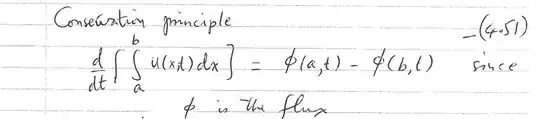 Conservation principle —(4.51)
d/dt [ ∫_a^b u(x,t) dx ] = ϕ(a,t) - ϕ(b,t) since
ϕ is the flux